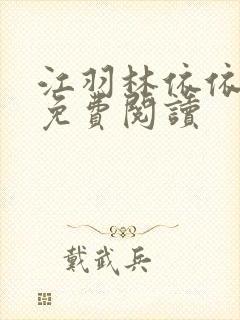 江羽林依依
免費閱讀
戴武兵